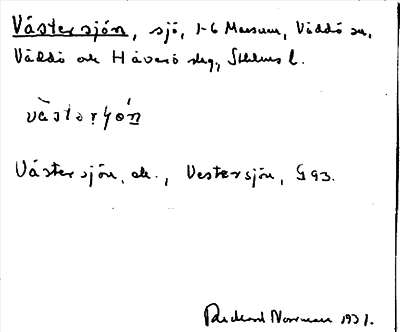 Västersjön, sjö, 1-6 Massum, Väddö sn,
Väddö och Häverö skg., Sthlms l.
västərʂön
Västersjön, ek., Vestersjön, G 93.
Rickard Norrman 1931.